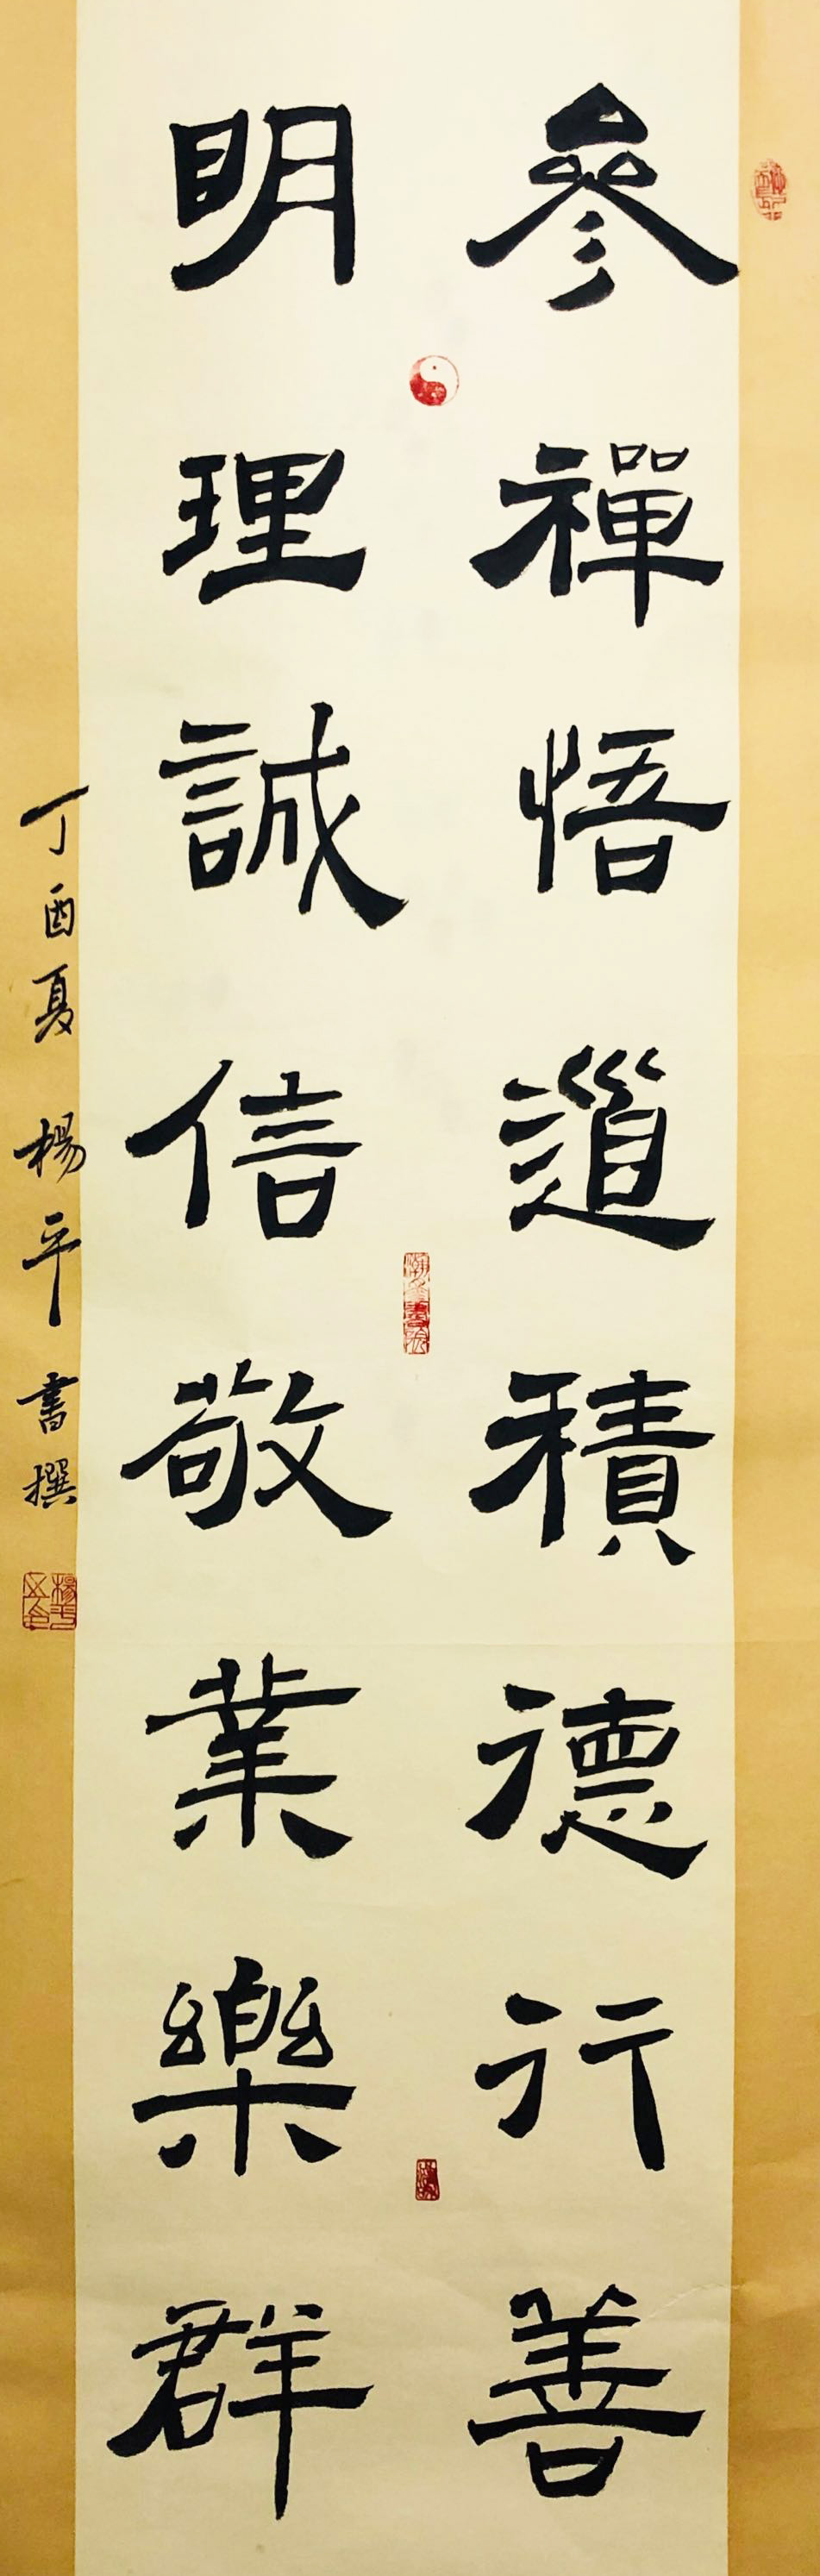 參禪悟道積德行善
明理誠信敬業樂群
丁酉夏 楊平 書撰